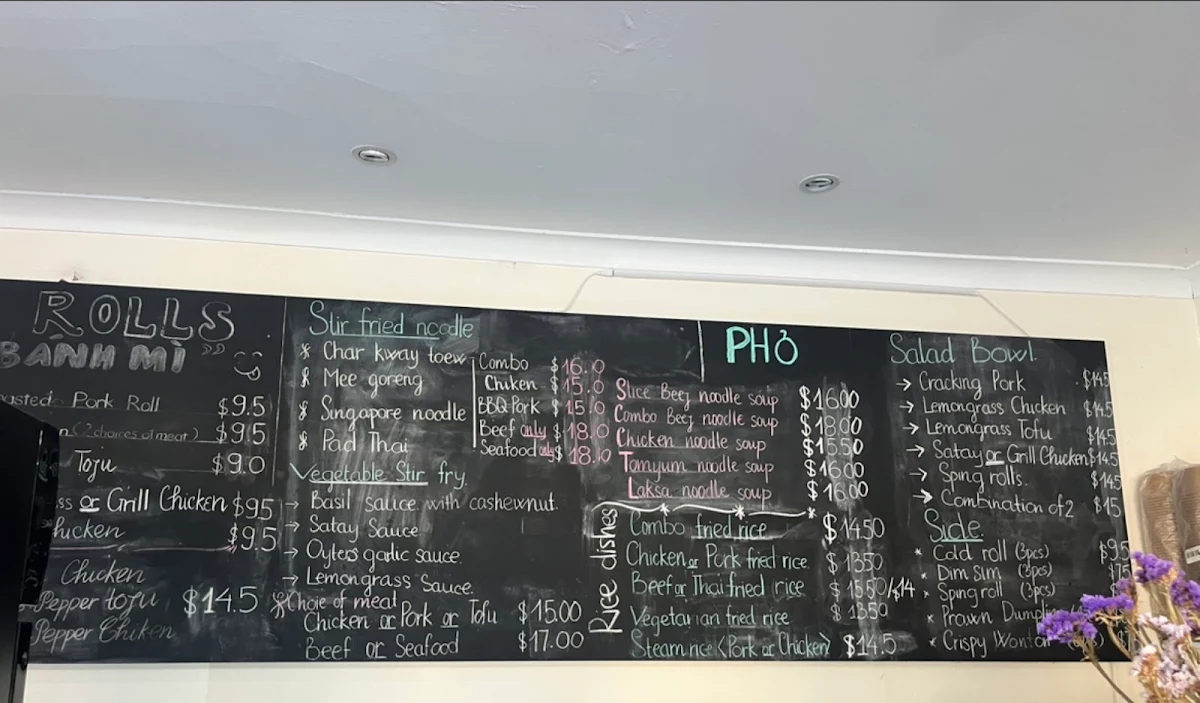 ROLLS
BÁNH MÌ
Pork Roll $9.5
(2 choices of meat) $9.5
Toju $9.0
or Grill Chicken $9.5
$9.5
Chicken
Pepper toju $14.5
Pepper Chiken
Stir fried noodle
* Char kway teow
* Mee goreng
* Singapore noodle
* Pad Thai
Combo $16.0
Chiken $15.0
BBQ Pork $15.0
Beef only $18.0
Seafood only $18.0
Vegetable Stir fry.
→ Basil sauce with cashewnut.
→ Satay Sauce
→ Oyters garlic sauce.
→ Lemongrass Sauce.
*Choie of meat
Chicken or Pork or Tofu $15.00
Beef or Seafood $17.00
PHỞ
Slice Beef noodle soup $16.00
Combo Beef noodle soup $18.00
Chicken noodle soup $15.50
Tomyum noodle soup $16.00
Laksa noodle soup $16.00
Rice dishes
Combo fried rice $14.50
Chicken or Pork fried rice $13.50
Beef or Thai fried rice $15.50/$14
Vegetarian fried rice $13.50
Steam rice (Pork or Chicken) $14.5
Salad Bowl.
→ Cracking Pork $14.5
→ Lemongrass Chicken $14.5
→ Lemongrass Tofu $14.5
→ Satay or Grill Chicken $14.5
→ Sping rolls. $14.5
→ Combination of 2 $15
Side.
* Cold roll (3pcs) $9.5
* Dim Sim (3pcs)
* Sping roll (3pcs)
* Prawn
* Crispy Wonton